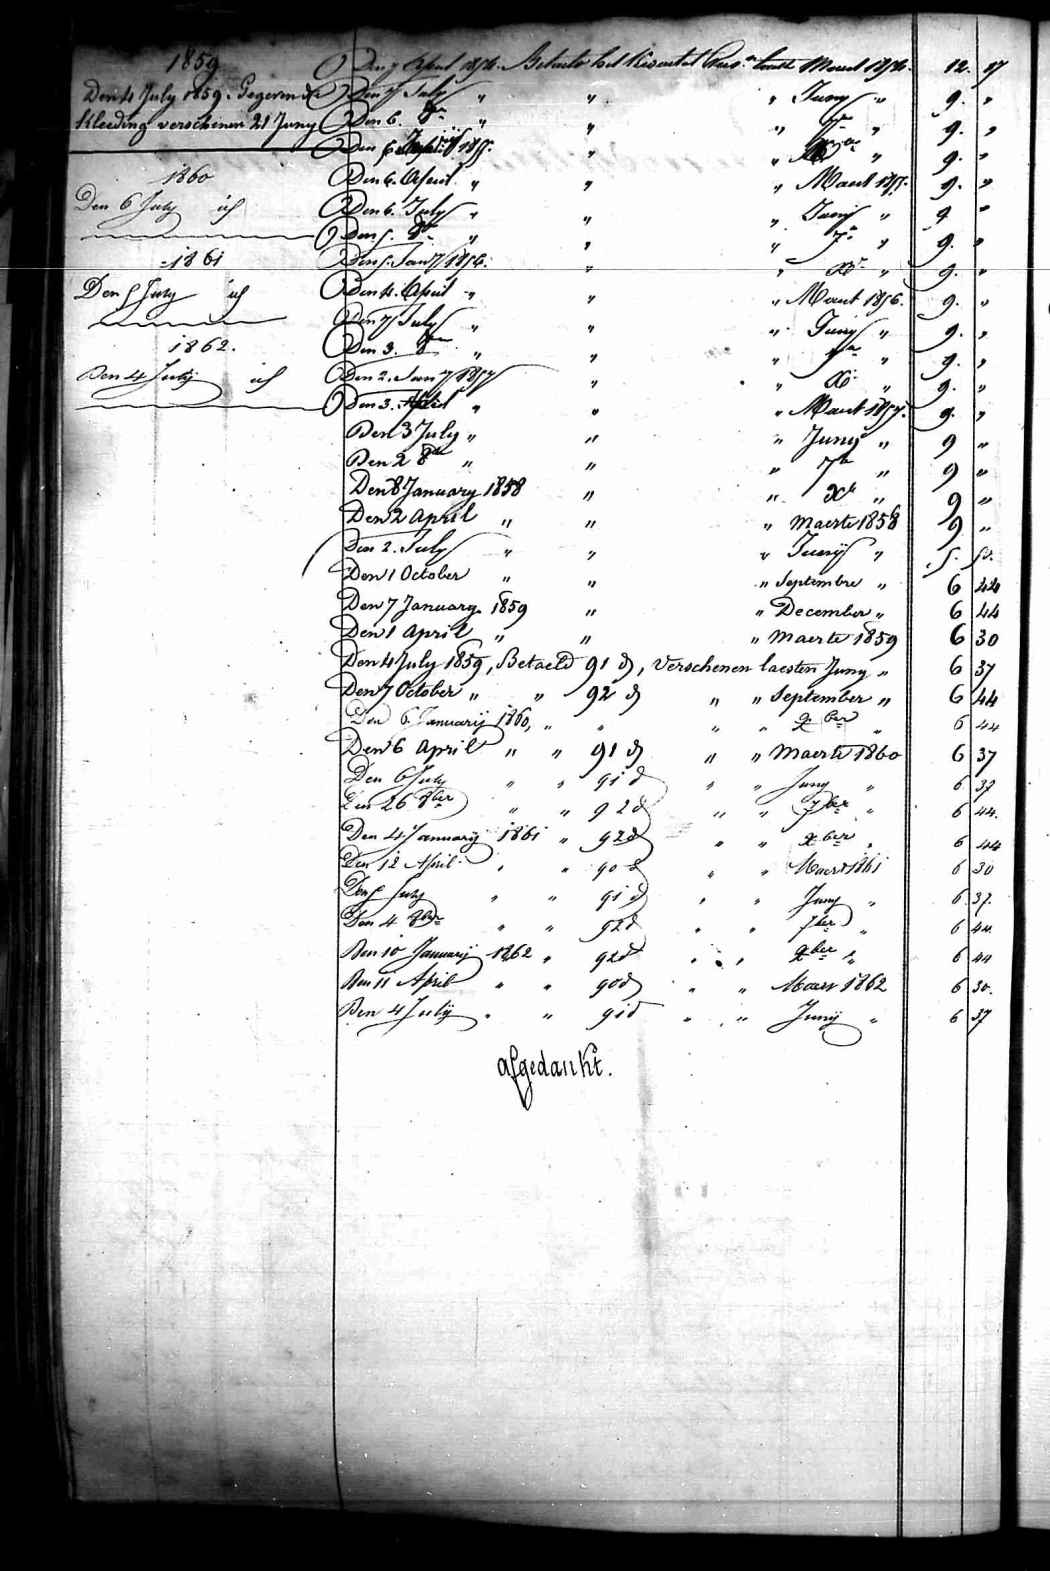 1859
Den 4 July 1859. Gegeven de
Kleeding verschenen 21 Juny
1860
Den 6 July id
1861
Den 5 July id
1862.
Den 4 July id
Den 7 April 1854. Betaelt het Kwartael 12. 17
Den 7 July " " " Juny " 9. "
Den 6. 8bre " " " 7bre " 9. "
" " 9. "
Den 6. April " " " Maert 1855. 9. "
Den 6. July " " " Juny " 9 "
Den 5. 8bre " " " 7bre " 9. "
Den 5. Jany 1856. " " Xbr " 9. "
Den 4. April " " " Maert 1856. 9. "
Den 7 July " " " Juny " 9. "
Den 3. 8bre " " " 7bre " 9. "
Den 2. Jany 1857 " " Xbr " 9. "
Den 3. April " " " Maert 1857. 9. "
Den 3 July " " " Juny " 9 "
Den 2 8bre " " " 7br " 9 "
Den 8 January 1858 " " Xbr " 9 "
Den 2 April " " " Maerte 1858 9 "
Den 2. July " " " Junij " 5. 50.
Den 1 October " " " Septembre " 6 44
Den 7 January 1859 " " December " 6 44
Den 1 April " " " Maerte 1859 6 30
Den 4 July 1859, Betaeld 91 d, Verschenen laesten Juny " 6 37
Den 7 October " " 92 d " " September " 6 44
Den 6 Januarij 1860, " " " " xber " 6 44
Den 6 April " " 91 d " " Maerte 1860 6 37
Den 6 July " " 91 d " " Juny " 6 37
Den 26 8ber " " 92 d " " 7ber " 6 44.
Den 4 Januarij 1861 " 92 d " " xber " 6 44
Den 12 April " " 90 d " " Maert 1861 6 30
Den 5 July " " 91 d " " Juny " 6 37
Den 4 8ber " " 92 d " " 7ber " 6 44
Den 10 Januarij 1862 " 92 d " " xber " 6 44
Den 11 April " " 90 d " " Maert 1862 6 30.
Den 4 Julij " " 91 d " " Junij " 6 37
afgedankt.